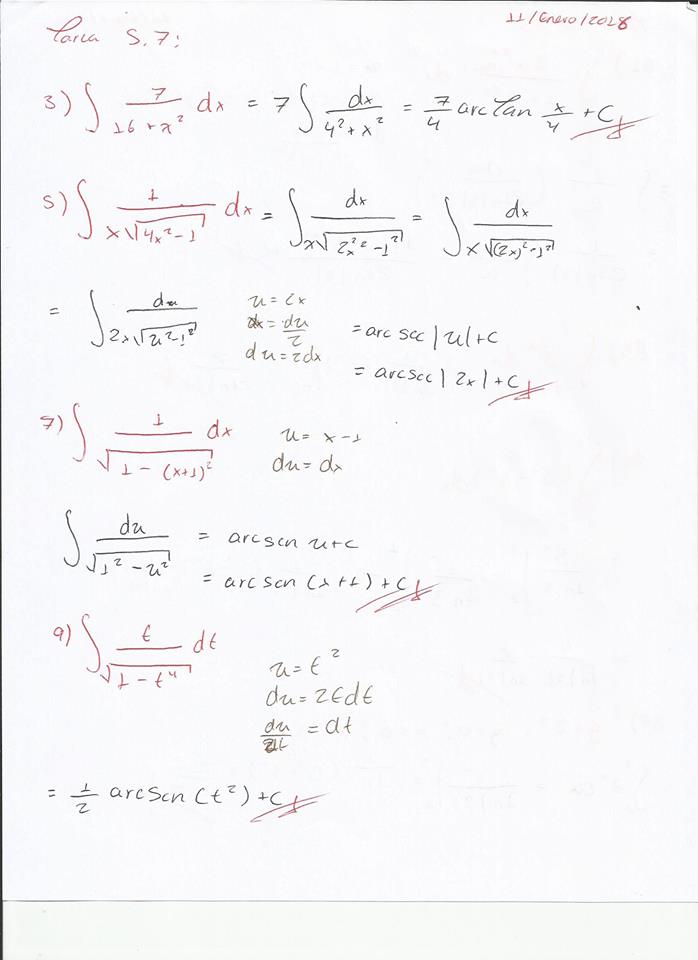 11/Enero/2028
Tarea 5.7:
3) ∫ 7/(16+x²) dx = 7 ∫ dx/(4²+x²) = 7/4 arctan x/4 + C
5) ∫ 1/(x√(4x²-1)) dx = ∫ dx/(x√(2²x²-1²)) = ∫ dx/(x√((2x)²-1²))
= ∫ du/(2x√(u²-1²))
u=2x
dx=du/2
du=2dx
=arcsec|u|+c
=arcsec|2x|+c
7) ∫ 1/√(1-(x+1)²) dx
u=x-1
du=dx
∫ du/√(1²-u²) = arcsen u+c
= arcsen (x+1)+c
9) ∫ t/√(1-t⁴) dt
u=t²
du=2tdt
du/2t = dt
= 1/2 arcsen(t²)+c